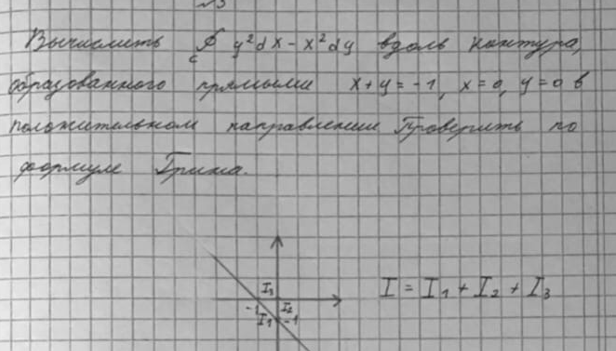 Вычислить ∮ y²dx - x²dy вдоль контура,
c
образованного прямыми x+y=-1, x=0, y=0 в
положительном направлении Проверить по
формуле Грина.
I₃
-1 I₂
I₁ -1
I = I₁ + I₂ + I₃